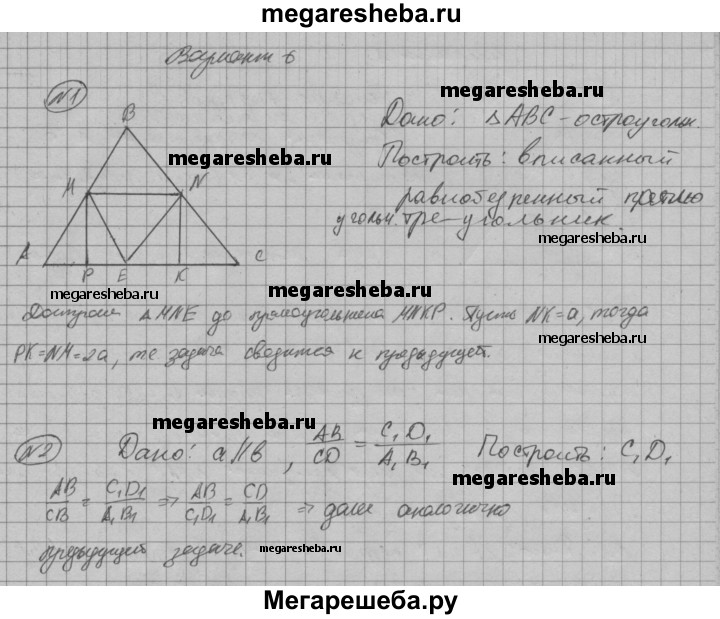 megaresheba.ru
Вариант 6
№1
megaresheba.ru
B
Дано: △ABC - остроугольн.
megaresheba.ru
Построить: вписанный
M N
равнобедренный прямо
угольн. треугольник.
megaresheba.ru
A P E K C
megaresheba.ru
megaresheba.ru
Достроим △MNE до прямоугольника MNKP. Пусть NK=a, тогда
PK=NM=2a, те задача сводится к предыдущей.
megaresheba.ru
megaresheba.ru
№2 Дано: a∥b, AB/CD = C₁D₁/A₁B₁ Построить: C₁D₁
megaresheba.ru
AB/CB = C₁D₁/A₁B₁ ⇒ AB/C₁D₁ = CD/A₁B₁ ⇒ далее аналогично
предыдущей задаче.
megaresheba.ru
Мегарешеба.ру